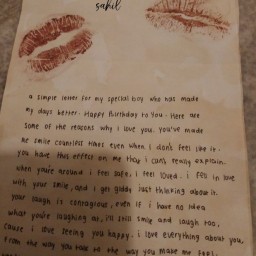 sahil
a simple letter for my special boy who has made
my days better. Happy Birthday to You. Here are
some of the reasons why I love you. You've made
me smile countless times even when I don't feel like it.
you have this effect on me that I can't really explain.
when you're around i feel safe, i feel loved. i fell in love
with your smile, and i get giddy just thinking about it.
your laugh is contagious, even if i have no idea
what you're laughing at, i'll still smile and laugh too,
cause i love seeing you happy. i love everything about you,
from the way you talk to the way you make me feel.